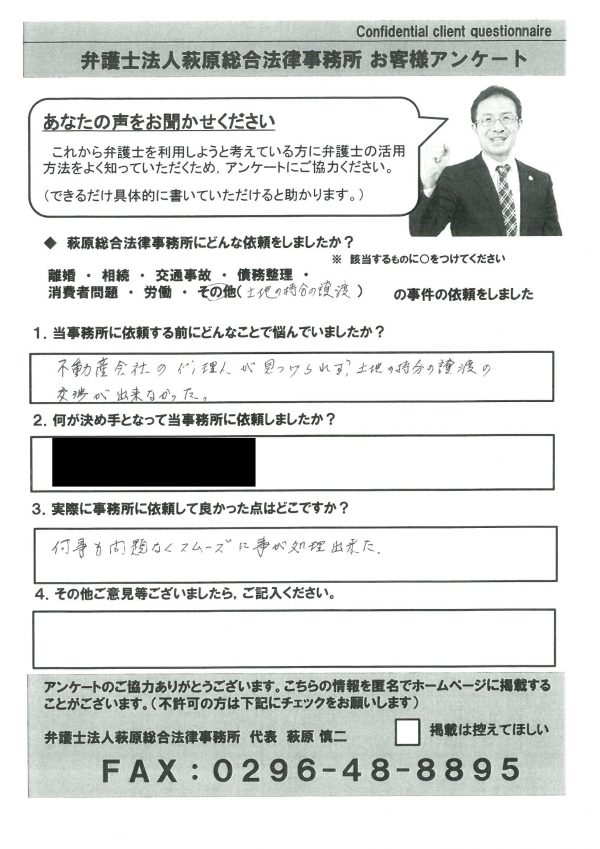 Confidential client questionnaire
弁護士法人萩原総合法律事務所 お客様アンケート
あなたの声をお聞かせください
これから弁護士を利用しようと考えている方に弁護士の活用
方法をよく知っていただくため，アンケートにご協力ください。
（できるだけ具体的に書いていただけると助かります。）
◆ 萩原総合法律事務所にどんな依頼をしましたか？
※ 該当するものに○をつけてください
離婚 ・ 相続 ・ 交通事故 ・ 債務整理 ・
消費者問題 ・ 労働 ・ その他（土地の持分の譲渡）
の事件の依頼をしました
１．当事務所に依頼する前にどんなことで悩んでいましたか？
不動産会社の代理人が見つけられず、土地の持分の譲渡の
交渉が出来なかった。
２．何が決め手となって当事務所に依頼しましたか？
３．実際に事務所に依頼して良かった点はどこですか？
何事も問題なくスムーズに事が処理出来た。
４．その他ご意見等ございましたら，ご記入ください。
アンケートのご協力ありがとうございます。こちらの情報を匿名でホームページに掲載する
ことがございます。（不許可の方は下記にチェックをお願いします）
弁護士法人萩原総合法律事務所 代表 萩原 慎二
掲載は控えてほしい
ＦＡＸ：０２９６-４８-８８９５